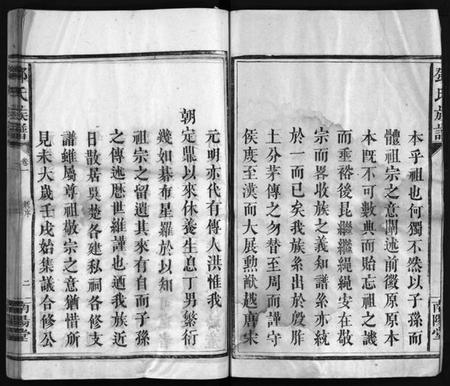 鄧氏族譜
南陽堂
本乎祖也何獨不然以子孫而
體祖宗之意闡述前徽原原本
本既不可數典而貽忘祖之譏
而垂裕後昆繼繼繩繩安在敬
宗而收族之義知譜系亦統
於一而已矣我族系出於殷胙
土分茅傳之勿替至周而謹守
侯度至漢而大展勲猷越唐宋
元明亦代有傳人洪惟我
朝定鼎以來休養生息丁男繁衍
幾如碁布星羅於以知
祖宗之留遺其來有自而子孫
之傳述曆世維謹也廼我族近
日散居吳楚各建私祠各修支
譜雖屬尊祖敬宗之意猶惜所
見未大歲壬戌始集議合修公
鄧氏族譜
卷一
二
南陽堂